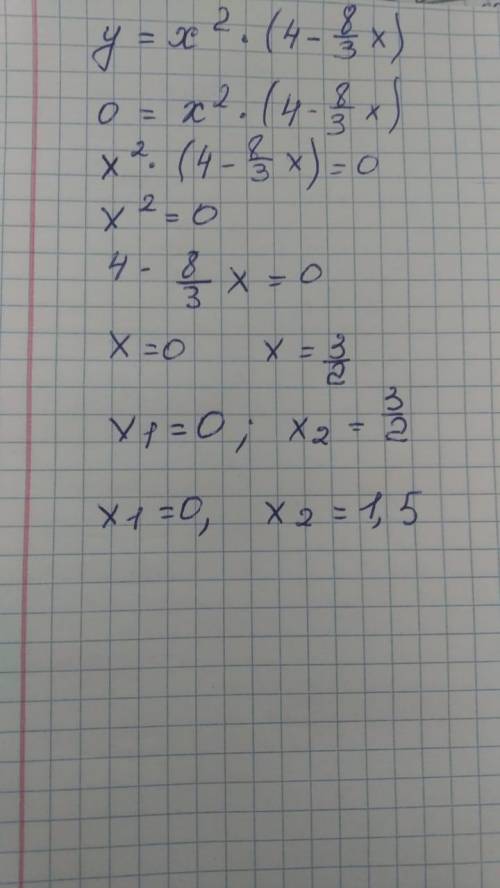 y = x² · (4 - 8/3 x)
0 = x² · (4 - 8/3 x)
x² · (4 - 8/3 x) = 0
x² = 0
4 - 8/3 x = 0
x = 0 x = 3/2
x1 = 0 ; x2 = 3/2
x1 = 0, x2 = 1,5